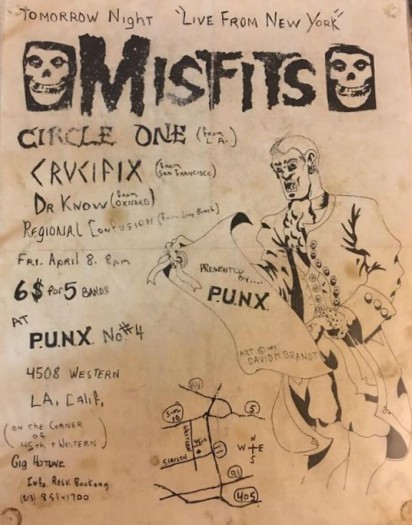 Tomorrow Night "Live From New York"
MISFITS
CIRCLE ONE (from L.A.)
CRUCIFIX (from SAN FRANCISCO)
DR KNOW (from OXNARD)
REGIONAL CONFUSION (from Long Beach)
FRI. APRIL 8. 8pm
6$ for 5 BANDS
AT
P.U.N.X. No#4
4508 WESTERN
LA, Calif,
(ON THE CORNER
OF
45th + WESTERN)
Gig HOTLINE
Info. Resv. Booking,
851-1700
PRESENTED
BY....
P.U.N.X.
ART ©
DAVID M. BRANDT
5
10
WESTERN
11
W N E
S
91
405